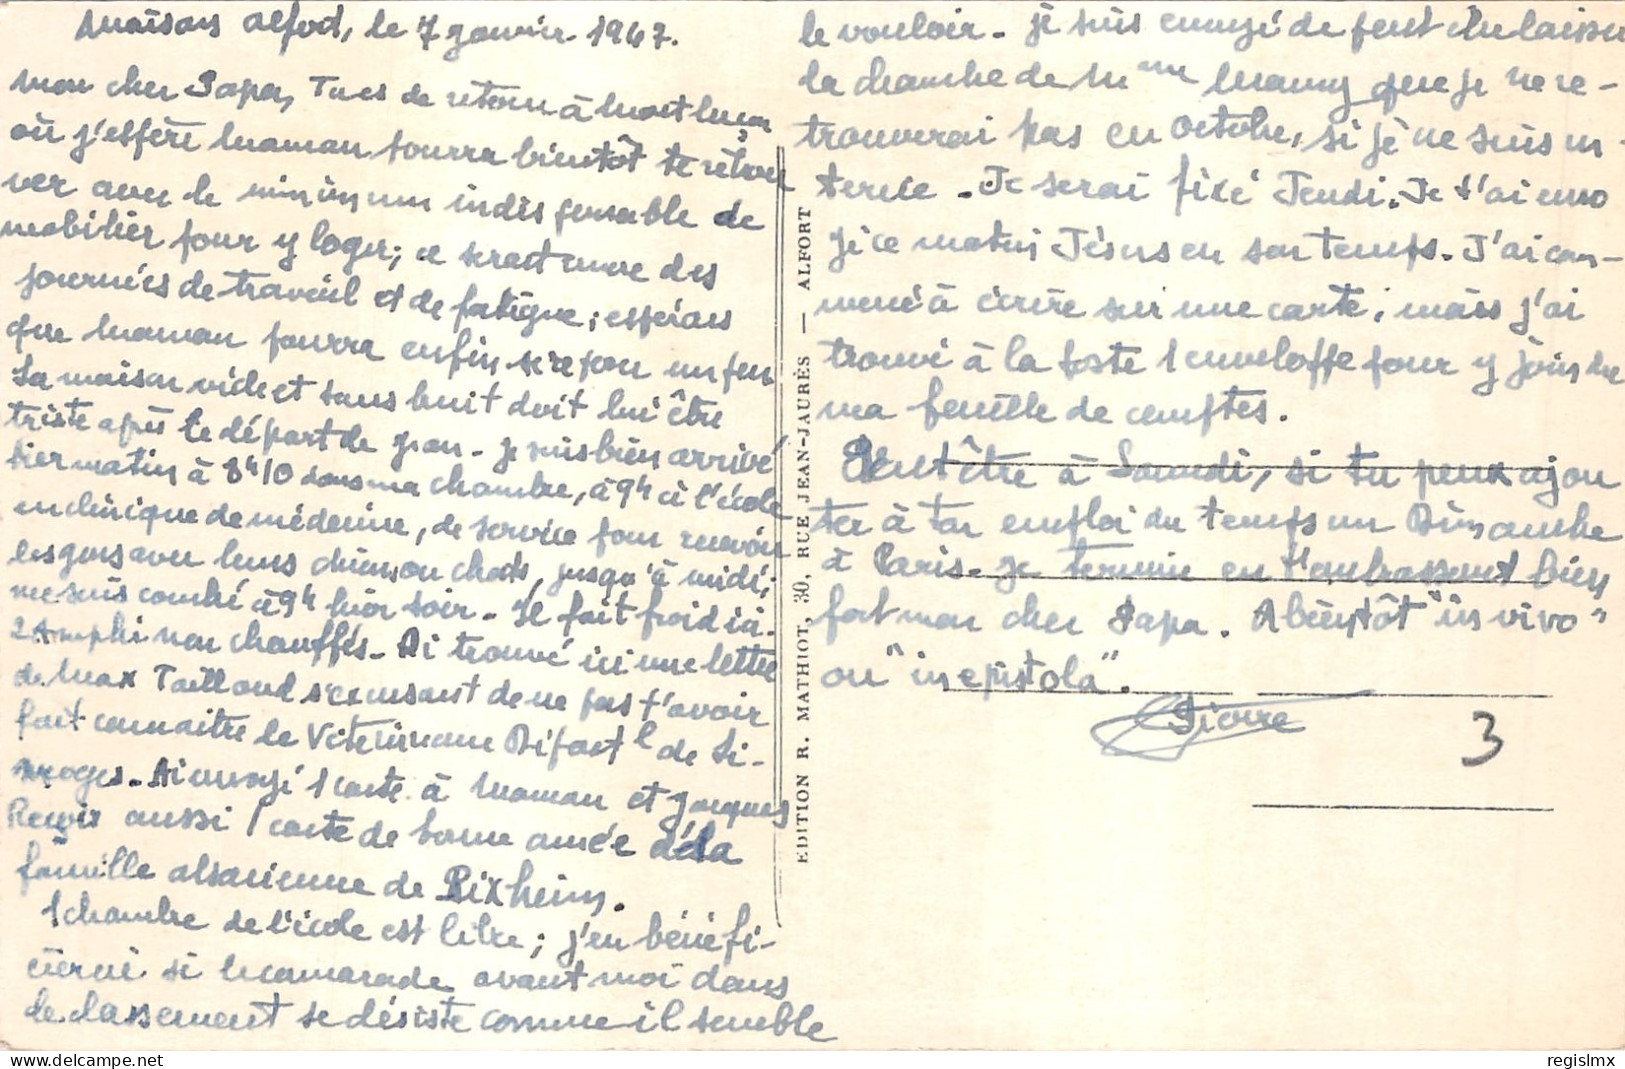 Maisons Alfort, le 7 janvier 1947.
Mon cher Papa, Tu es de retour à Montluçon
où j'espère Maman pourra bientôt te retrou
ver avec le minimum indispensable de
mobilier pour y loger; ce serait encore des
journées de travail et de fatigue; espérons
que Maman pourra enfin se reposer un peu
La maison vide et sans bruit doit lui être
triste après le départ de Jean - Je suis bien arrivé
hier matin à 8h10 dans ma chambre, à 9h à l'école
en clinique de médecine, de service pour recevoir
les gens avec leurs chiens ou chats, jusqu'à midi;
me suis couché à 9h hier soir - Il fait froid ici.
2 Amphi non chauffés - Ai trouvé ici une lettre
de Max Tailland s'excusant de ne pas t'avoir
fait connaître le Vétérinaire Départ l de Li-
moges - Ai envoyé 1 carte à Maman et Jacques
Reçois aussi 1 carte de bonne année de la
famille alsacienne de Rixheim.
1 chambre de l'école est libre; j'en bénéfi-
cierai si le camarade avant moi dans
le classement se désiste comme il semble
le vouloir - je suis ennuyé de peut être laisser
la chambre de Mme Mauny que je ne re-
trouverai pas en octobre, si je ne suis in-
terne - Je serai fixé Jeudi. Je t'ai envo
yé ce matin Jésus en son temps. J'ai com-
mencé à écrire sur une carte, mais j'ai
trouvé à la poste 1 enveloppe pour y joindre
ma feuille de comptes.
Peut être à Samedi, si tu peux ajou
ter à ton emploi du temps un Dimanche
à Paris - Je termine en t'embrassant bien
fort mon cher Papa. A bientôt "in vivo"
ou "in epistola".
Pierre
3
EDITION R. MATHIOT, 30, RUE JEAN-JAURÈS — ALFORT
regislmx